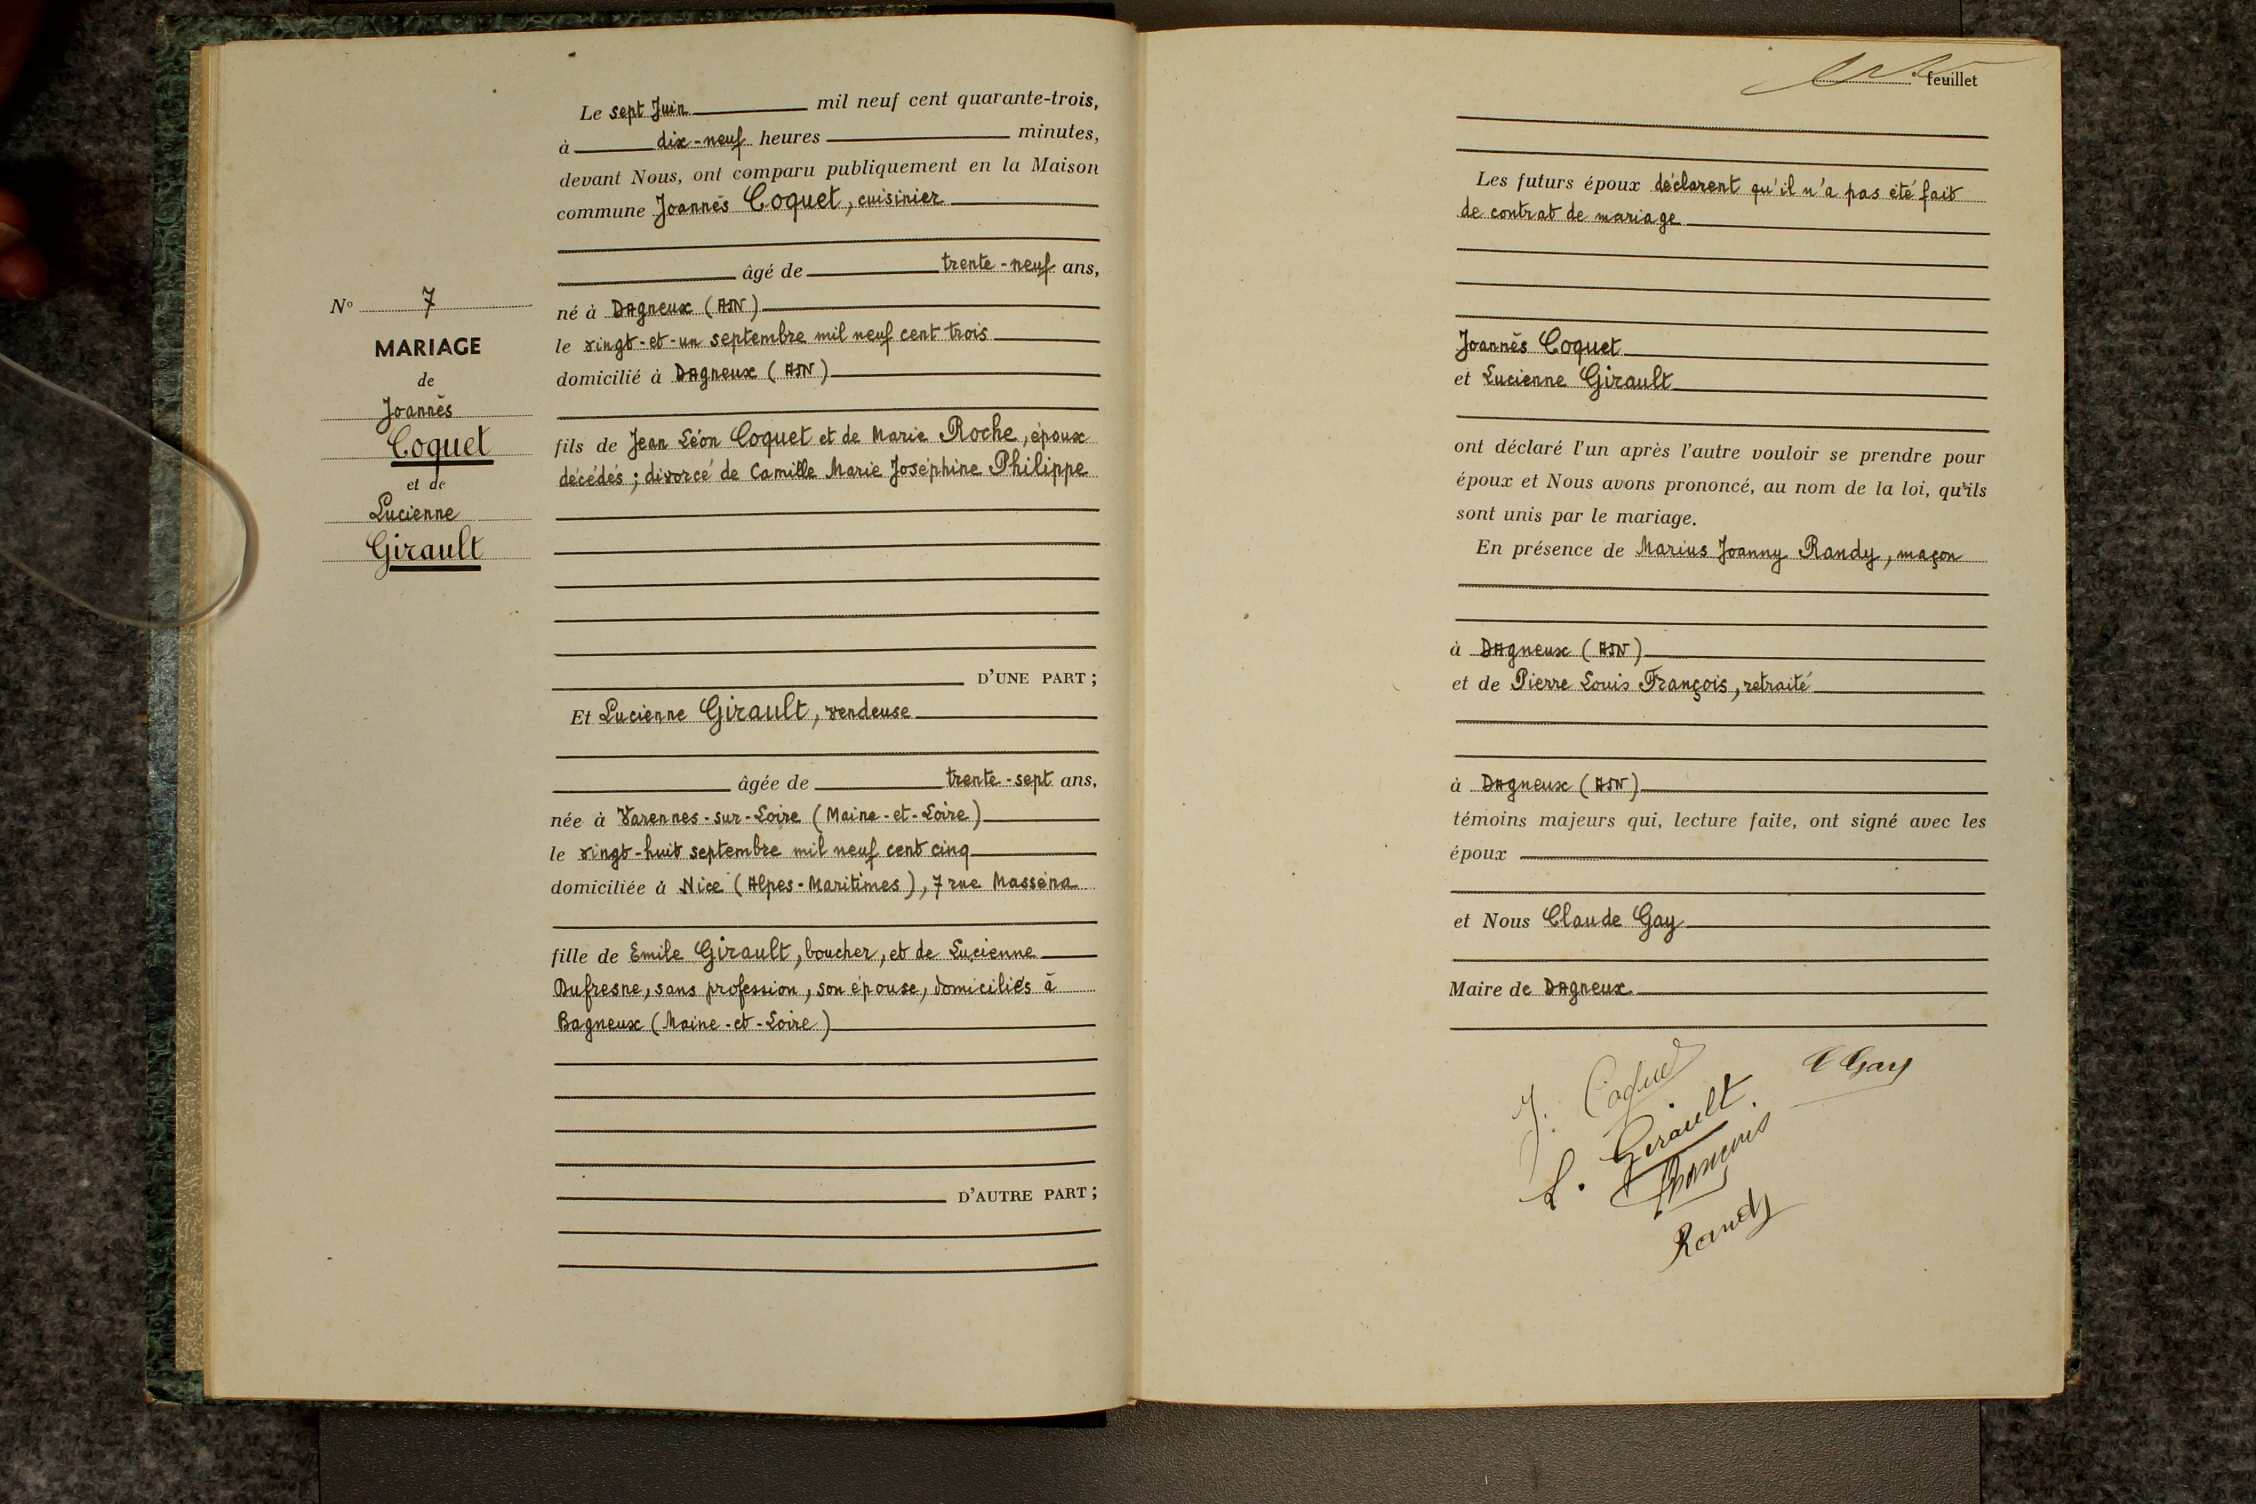 N° 7
MARIAGE
de
Joannès
Coquet
et de
Lucienne
Girault
Le sept Juin mil neuf cent quarante-trois,
à dix-neuf heures minutes,
devant Nous, ont comparu publiquement en la Maison
commune Joannès Coquet, cuisinier
âgé de trente-neuf ans,
né à Dagneux (AIN)
le vingt-et-un septembre mil neuf cent trois
domicilié à Dagneux (AIN)
fils de Jean Léon Coquet et de Marie Roche, époux
décédés ; divorcé de Camille Marie Joséphine Philippe
D'UNE PART ;
Et Lucienne Girault, vendeuse
âgée de trente-sept ans,
née à Varennes-sur-Loire (Maine-et-Loire)
le vingt-huit septembre mil neuf cent cinq
domiciliée à Nice (Alpes-Maritimes), 7 rue Masséna
fille de Emile Girault, boucher, et de Lucienne
Dufresne, sans profession, son épouse, domiciliés à
Bagneux (Maine-et-Loire)
D'AUTRE PART ;
feuillet
Les futurs époux déclarent qu'il n'a pas été fait
de contrat de mariage
Joannès Coquet
et Lucienne Girault
ont déclaré l'un après l'autre vouloir se prendre pour
époux et Nous avons prononcé, au nom de la loi, qu'ils
sont unis par le mariage.
En présence de Marius Joanny Randy, maçon
à Dagneux (AIN)
et de Pierre Louis François, retraité
à Dagneux (AIN)
témoins majeurs qui, lecture faite, ont signé avec les
époux
et Nous Claude Gay
Maire de Dagneux
J. Coquet
C Gay
L. Girault.
François
Randy